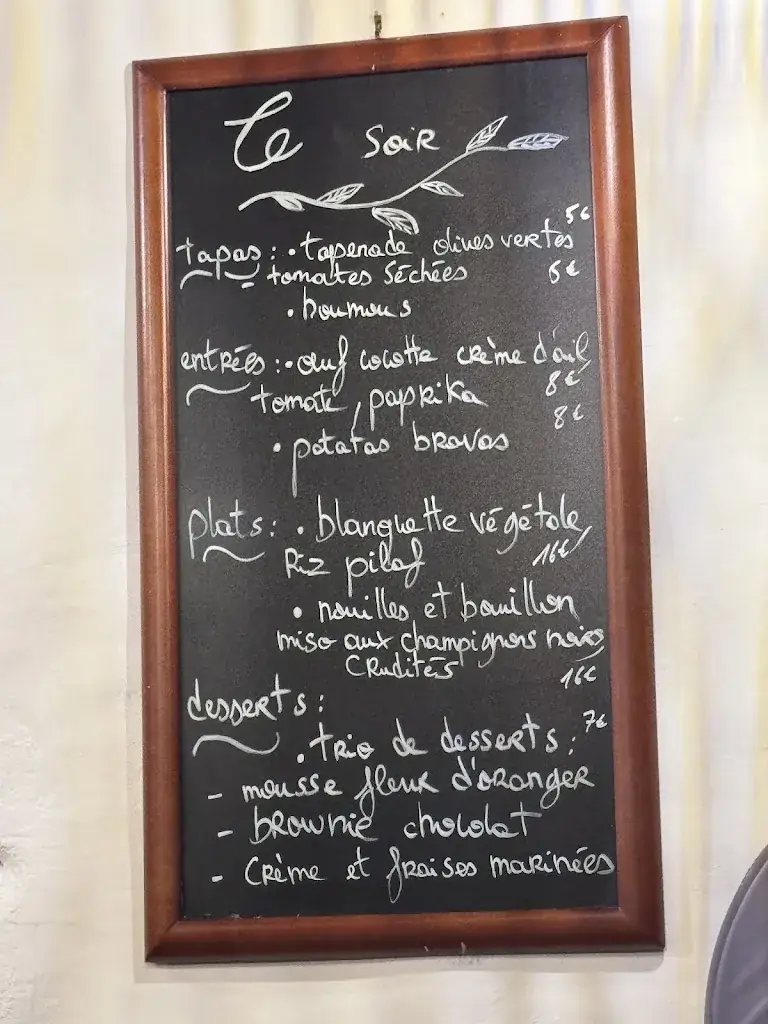 Le soir
5€
tapas: • tapenade olives vertes
tomates séchées 6€
• houmous
entrées: • œuf cocotte crème d'ail
tomate, paprika 8€
8€
• patatas bravas
plats: • blanquette végétale,
Riz pilaf 16€
• nouilles et bouillon
miso aux champignons noirs
crudités 16€
desserts:
• trio de desserts: 7€
- mousse fleur d'oranger
- brownie chocolat
- crème et fraises marinées